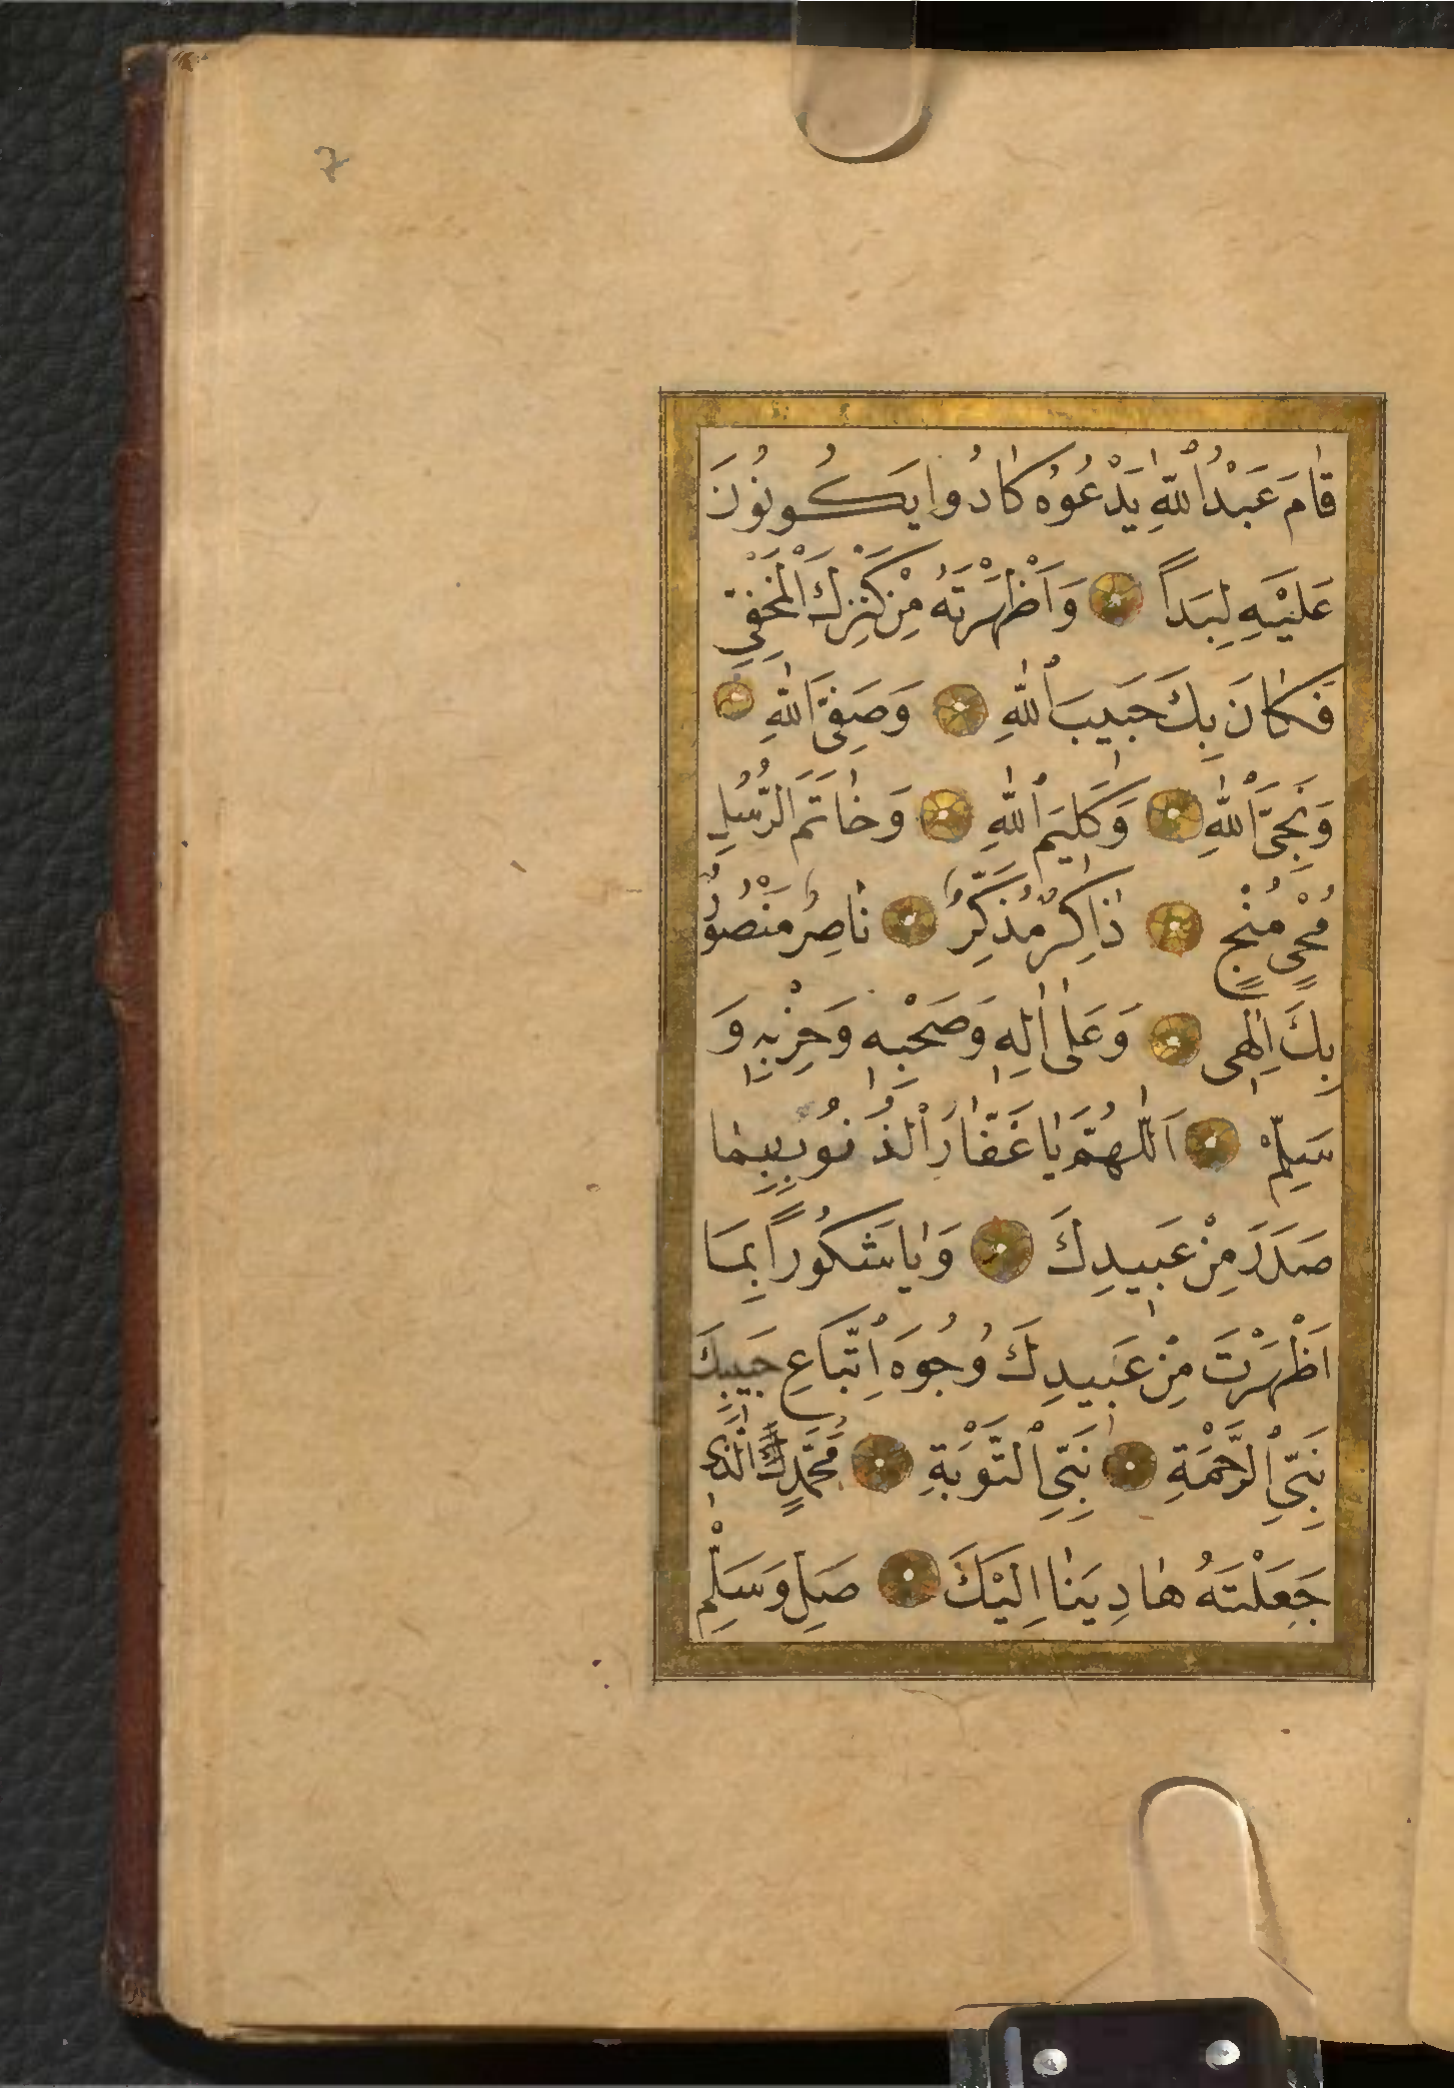 2
قَامَ عَبْدُ اللّٰهِ يَدْعُوهُ كَادُوا يَكُونُونَ
عَلَيْهِ لِبَدًا وَاَظْهَرْتَهُ مِنْ كَنْزِكَ الْمَخْفِيِّ
فَكَانَ بِكَ حَبِيبَ اللّٰهِ وَصَفِيَّ اللّٰهِ
وَنَجِيَّ اللّٰهِ وَكَلِيمَ اللّٰهِ وَخَاتَمَ الرُّسُلِ
مُحْيٍ مُنْجٍ ذَاكِرٌ مُذَكِّرٌ نَاصِرٌ مَنْصُورٌ
بِكَ اِلٰهِى وَعَلٰى اٰلِهِ وَصَحْبِهِ وَحِزْبِهِ وَ
سَلِّمْ اَللّٰهُمَّ يَا غَفَّارَ الذُّنُوبِ بِمَا
صَدَرَ مِنْ عَبِيدِكَ وَيَا شَكُورًا بِمَا
اَظْهَرْتَ مِنْ عَبِيدِكَ وُجُوهَ اِتِّبَاعِ حَبِيبِكَ
نَبِيِّ الرَّحْمَةِ نَبِيِّ التَّوْبَةِ مُحَمَّدٍ الَّذِى
جَعَلْتَهُ هَادِيَنَا اِلَيْكَ صَلِّ وَسَلِّمْ